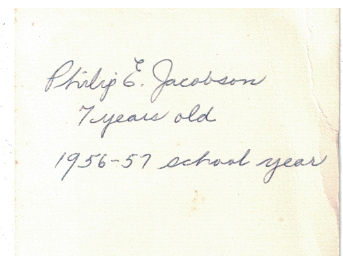 Philip E. Jacobson
7 years old
1956-57 school year